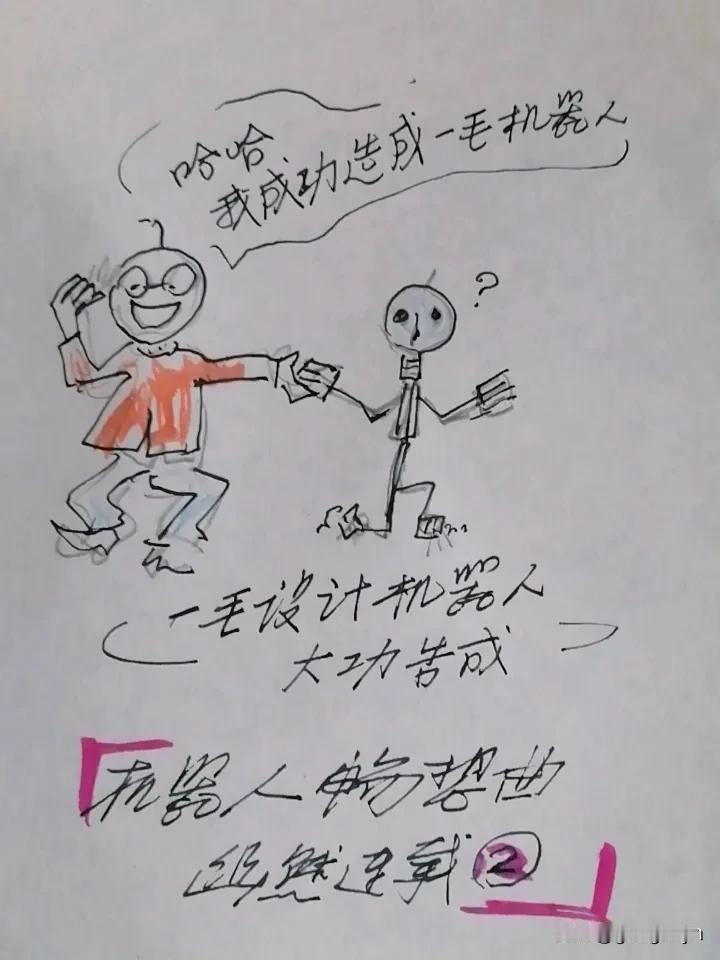 哈哈
我成功造成一毛机器人
?
一毛设计机器人
大功告成
机器人畅想曲
然连载②